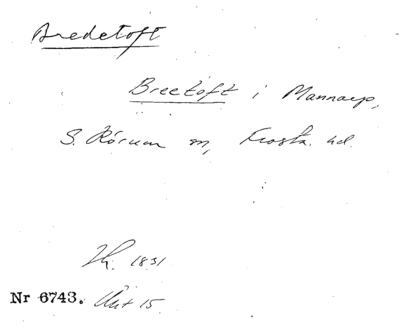 Bredetoft
Breetoft i Mannarp,
S. Rörum sn, Frosta hd.
1831
Nr 6743. Akt 15.